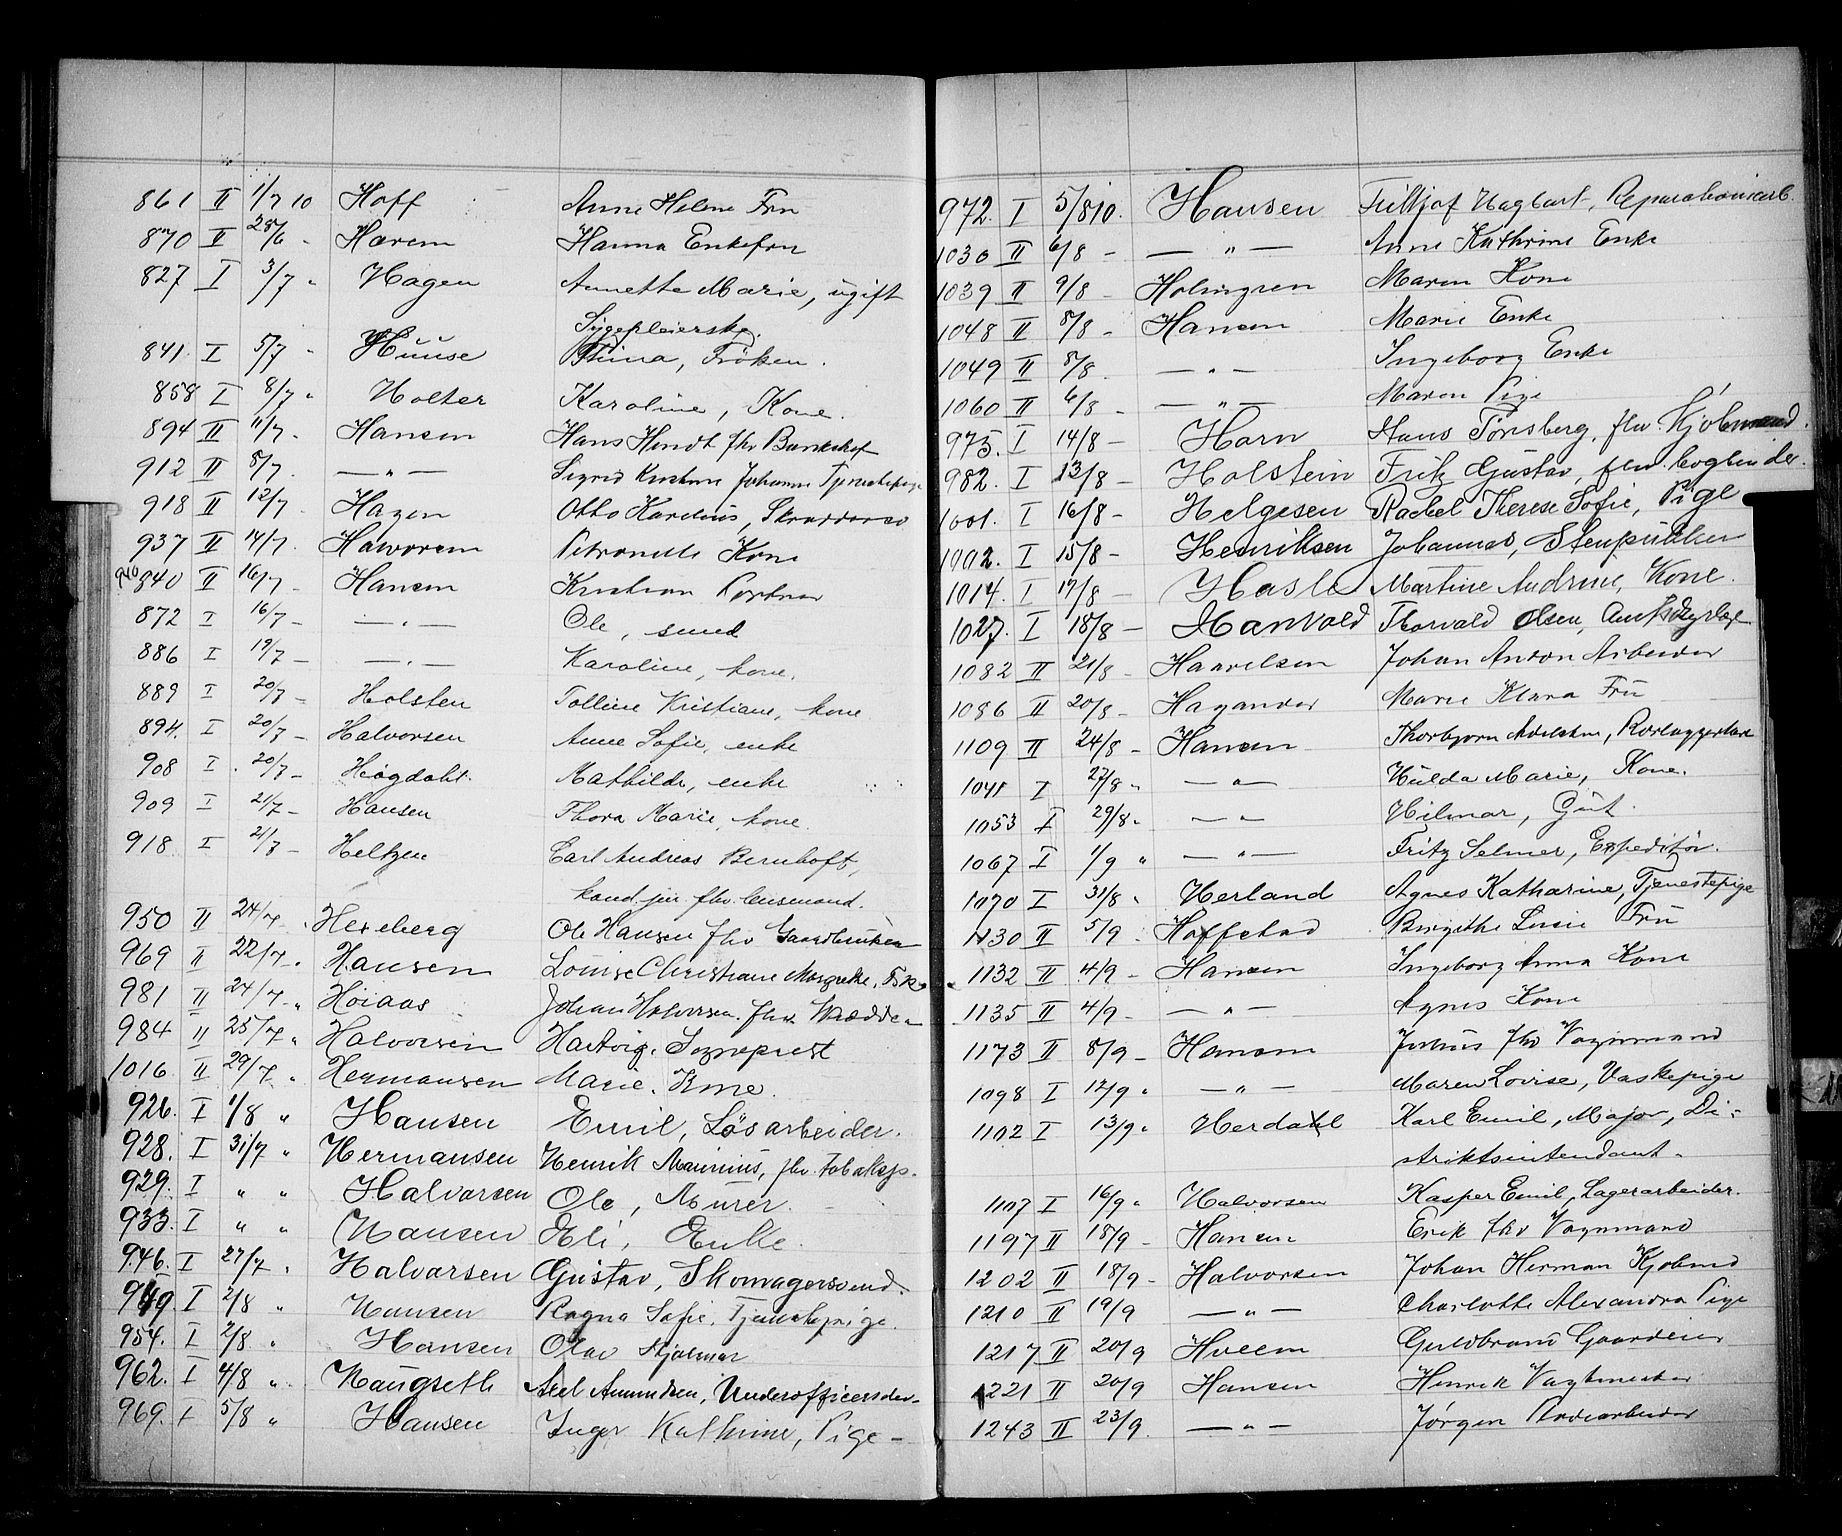 861 II 1/7 10 Hoff Anne Helene Fru
870 II 28/6 - Harem Hanna Enkefru
827 I 3/7 " Hagen Annette Marie, ugift
Sygepleierske.
841. I 5/7 " Huuse Stina, Frøken.
858 I 8/7 " Holter Karoline, Kone.
894 II 11/7 - Hansen Hans Hendt fhv Bankchef
912 II 8/7. — " — Sigrid Kristine Johanne Tjenestepige
918 II 12/7 Hagen Otto Karelius,
937 II 14/7. Halvorsen Petronelle Kone
940 II 16/7 - Hansen Kristian
872 I 16/7 - — " — Ole, smed
886 I 19/7 - — " — Karoline, kone.
889 I 20/7 - Holsten Tolline Kristiane, kone
894. I 20/7 - Halvorsen Anne Sofie, enke
908 I. 20/7 - Høgdahl Mathilde, enke
909 I 21/7 - Hansen Thora Marie, kone.
918 I 21/7 - Heltzen Carl Andreas Bernhoft,
kand. jur fhv. lensmand.
950 II 24/7. Hexeberg Ole Hansen fhv Gaardbruker
969 II 22/7. Hansen Louise Christiane Margrethe,
981 II 24/7 " Høiaas Johan Halvorsen. fhv. Skrædder
984 II 25/7 " Halvorsen Hartvig. Sogneprest
1016 II 29/7 " Hermansen Marie. Kone.
926. I 1/8 " Hansen Emil, Løsarbeider.
928. I 31/7 " Hermansen Henrik Maurinius, fhv. Tobaksp.
929. I " " Halvorsen Ole, Murer.
933. I " " Hansen Eli, Enke.
946. I 27/7 " Halvorsen Gustav, Skomagersvend.
949 I 2/8 " Hansen Ragna Sofie, Tjenestepige.
954. I 2/8 " Hansen Olav Hjalmar
962. I 4/8 " Haugseth Axel Amundsen, Underofficerselev.
969. I 5/8 " Hansen Inger Kathrine, Pige -
972. I 5/8 10. Hansen Fritjof Hagbart, Reparationsarb.
1030 II 6/8 - — " — Anne Kathrine Enke
1039 II 9/8 - Holmgren Maren Kone
1048 II 8/8 - Hansen Marie Enke
1049 II 8/8. — " — Ingeborg Enke
1060 II 6/8 - — " — Maren Pige
975. I 14/8 - Horn Hans Tønsberg, fhv. Kjøbmand.
982. I 13/8 - Holstein Fritz Gustav, fhv. bogbinder.
1001. I 16/8 - Helgesen Rachel Therese Sofie, Pige
1002. I 15/8 - Henriksen Johannes, Stenpukker
1014. I 17/8 - Hasle Martine Andrine, Kone.
1027. I 18/8 - Hanvold Thorvald Olsen,
1082 II 21/8 - Haavelsen Johan Anton Arbeider
1086 II 20/8 - Hagander Marie Klara Fru
1109 II 24/8 - Hansen Thorbjørn Adelsten, Rørlæggerlære
1041 I 27/8 " — " — Hulda Marie, Kone.
1053 I 29/8 " — " — Hilmar, Gut.
1067 I 1/9 " — " — Fritz Selmer, Expeditør.
1070 I 31/8 " Herland Agnes Katharine, Tjenestepige
1130 II 5/9 - Hoffstad Birgithe Lovise Fru
1132 II 4/9 - Hansen Ingeborg Anna Kone
1135 II 4/9 - — " — Agnes Kone
1173 II 8/9 - Hansen Julius fhv Vognmand
1098 I 12/9 " — " — Maren Lovise, Vaskepige
1102 I 13/9 " Herdahl Karl Emil, Major, Di-
striktsintendant.
1107 I 16/9 " Halvorsen Kasper Emil, Lagerarbeider.
1197 II 18/9 - Hansen Erik fhv Vognmand
1202 II 18/9 - Halvorsen Johan Herman Kjøbmd
1210 II 19/9 — " — Charlotte Alexandra Pige
1217 II 20/9 Hveem Guldbrand Gaardeier
1221 II 20/9 Hansen Henrik Vagtmester
1243 II 23/9. — " — Jørgen Jordarbeider